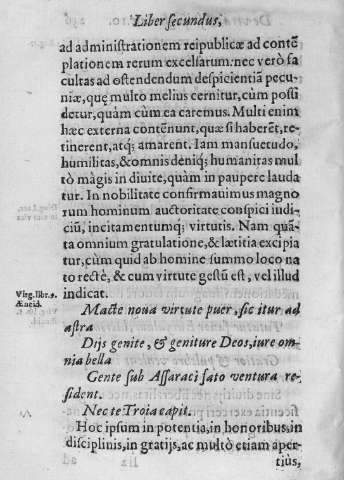 Liber secundus,
ad administrationem reipublicæ ad contẽ
plationem rerum excelsarum: nec verò fa
cultas ad ostendendum despicientiã pecu-
niæ, quę multo melius cernitur, cùm possi
detur, quàm cùm ea caremus. Multi enim
hæc externa contẽnunt, quæ si haberẽt, re-
tinerent, atq; amarent. Iam mansuetudo,
humilitas, & omnis deniq; humanitas mul
tò màgis in diuite, quàm in paupere lauda
tur. In nobilitate confirmauimus magno
rum hominum auctoritate conspici iudi-
ciũ, incitamentumq; virtutis. Nam quã-
ta omnium gratulatione, & lætitia excipia
tur, cùm quid ab homine summo loco na
to rectè, & cum virtute gestũ est, vel illud
Virg. lib. 9.
Æneid.
indicat.
Macte noua virtute puer, sic itur ad
astra
Dijs genite, & geniture Deos, iure om-
nia bella
Gente sub Assaraci fato ventura re-
sident.
Nec te Troia capit.
Hoc ipsum in potentia, in honoribus, in
disciplinis, in gratijs, ac multò etiam aper-
tiùs,